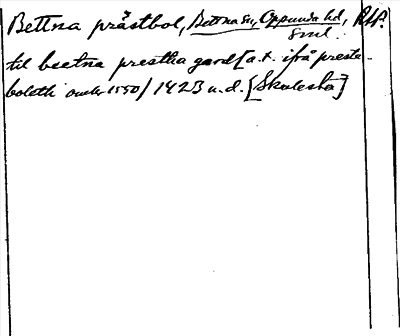 Bettna prästbol, Bettna sn, Oppunda hd, RAp.
Sml.
til beetna prestha gard [a.t. ifrå preste-
boleth omkr 1550] 1423 u.d. [Skulesta]